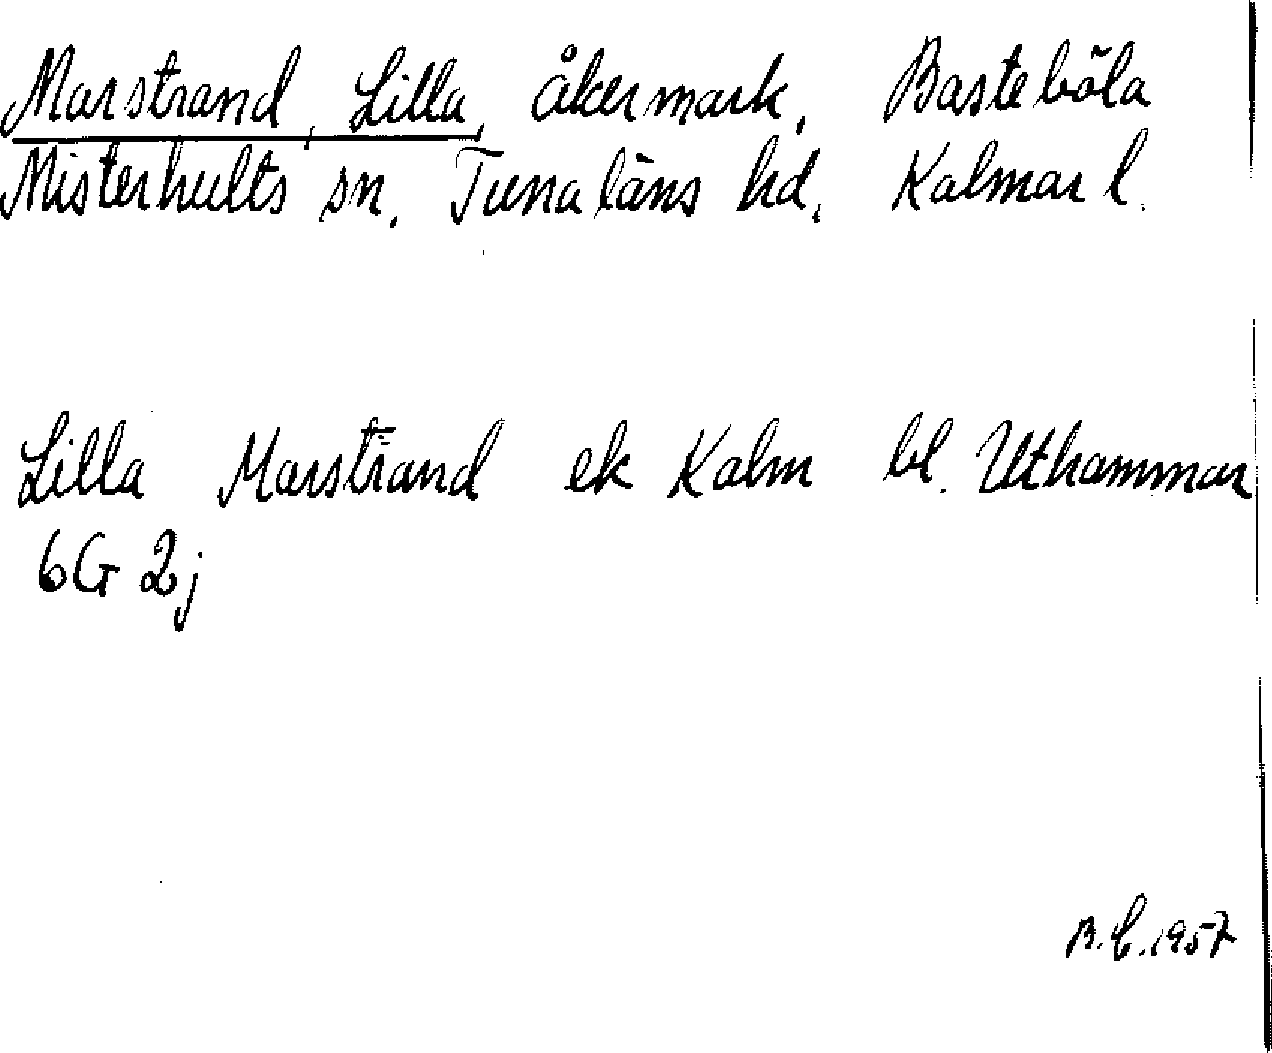 Marstrand, Lilla, åkermark, Basteböla
Misterhults sn. Tunaläns hd. Kalmar l.
Lilla Marstrand ek Kalm bl. Uthammar
6G 2j
B.C. 1957